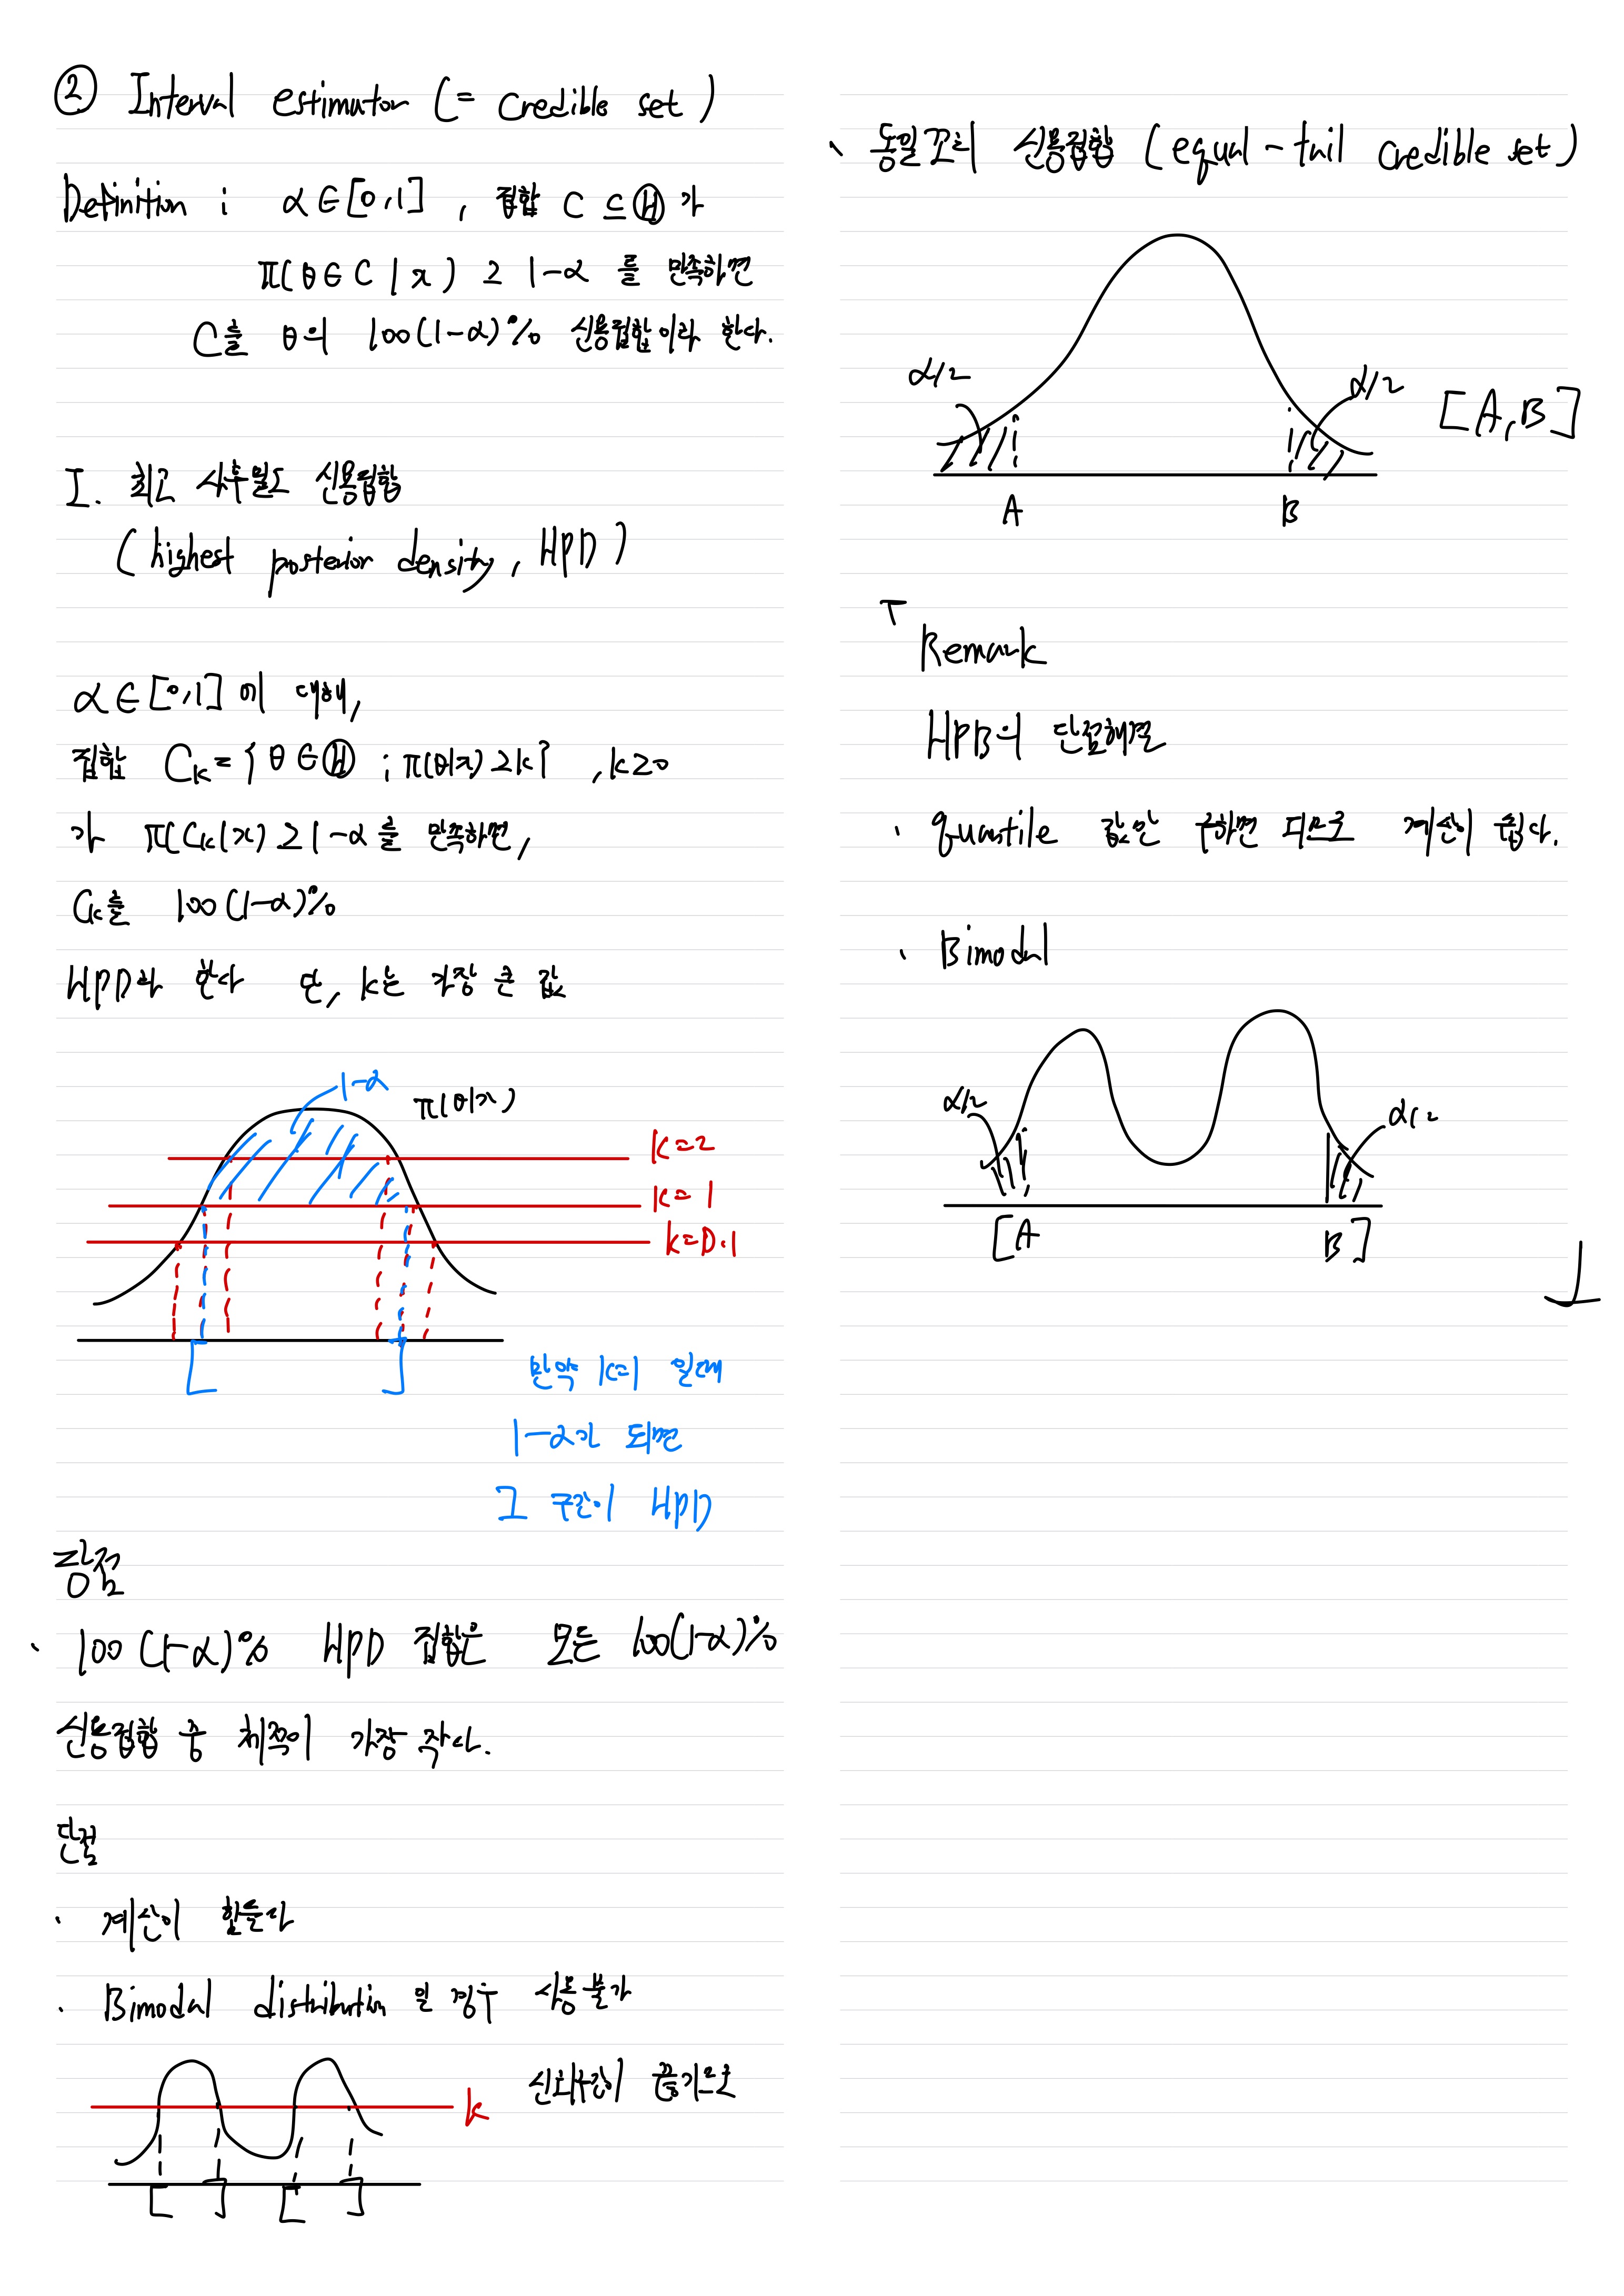 ② Interval estimator (= credible set)
Definition : α∈[0,1], 집합 C ⊆ Ⓗ 가
π(θ∈C|x) ≥ 1-α 를 만족하면
C를 θ의 100(1-α)% 신용집합이라 한다.
I. 최고 사후밀도 신용집합
(highest posterior density, HPD)
α∈[0,1]에 대해,
집합 Ck={θ∈Ⓗ ; π(θ|x)≥k} , k≥0
가 π(Ck|x)≥1-α를 만족하면,
Ck를 100(1-α)%
HPD라 한다 단, k는 가장 큰 값
1-α
π(θ|x)
k=2
k=1
k=0.1
만약 k=1 일때
1-α가 되면
그 구간이 HPD
강점
· 100(1-α)% HPD 집합은 모든 100(1-α)%
신용집합 중 체적이 가장 작다.
단점
· 계산이 힘들다
· Bimodal distribution 일 경우 사용 불가
신뢰구간이 끊기므로
k
[ ] [ ]
· 동일꼬리 신용집합 (equal-tail credible set)
α/2
α/2
[A,B]
A
B
Remark
HPD의 단점해결
· quantile 값만 구하면 되므로 계산이 쉽다.
· Bimodal
α/2
α/2
[A
B]